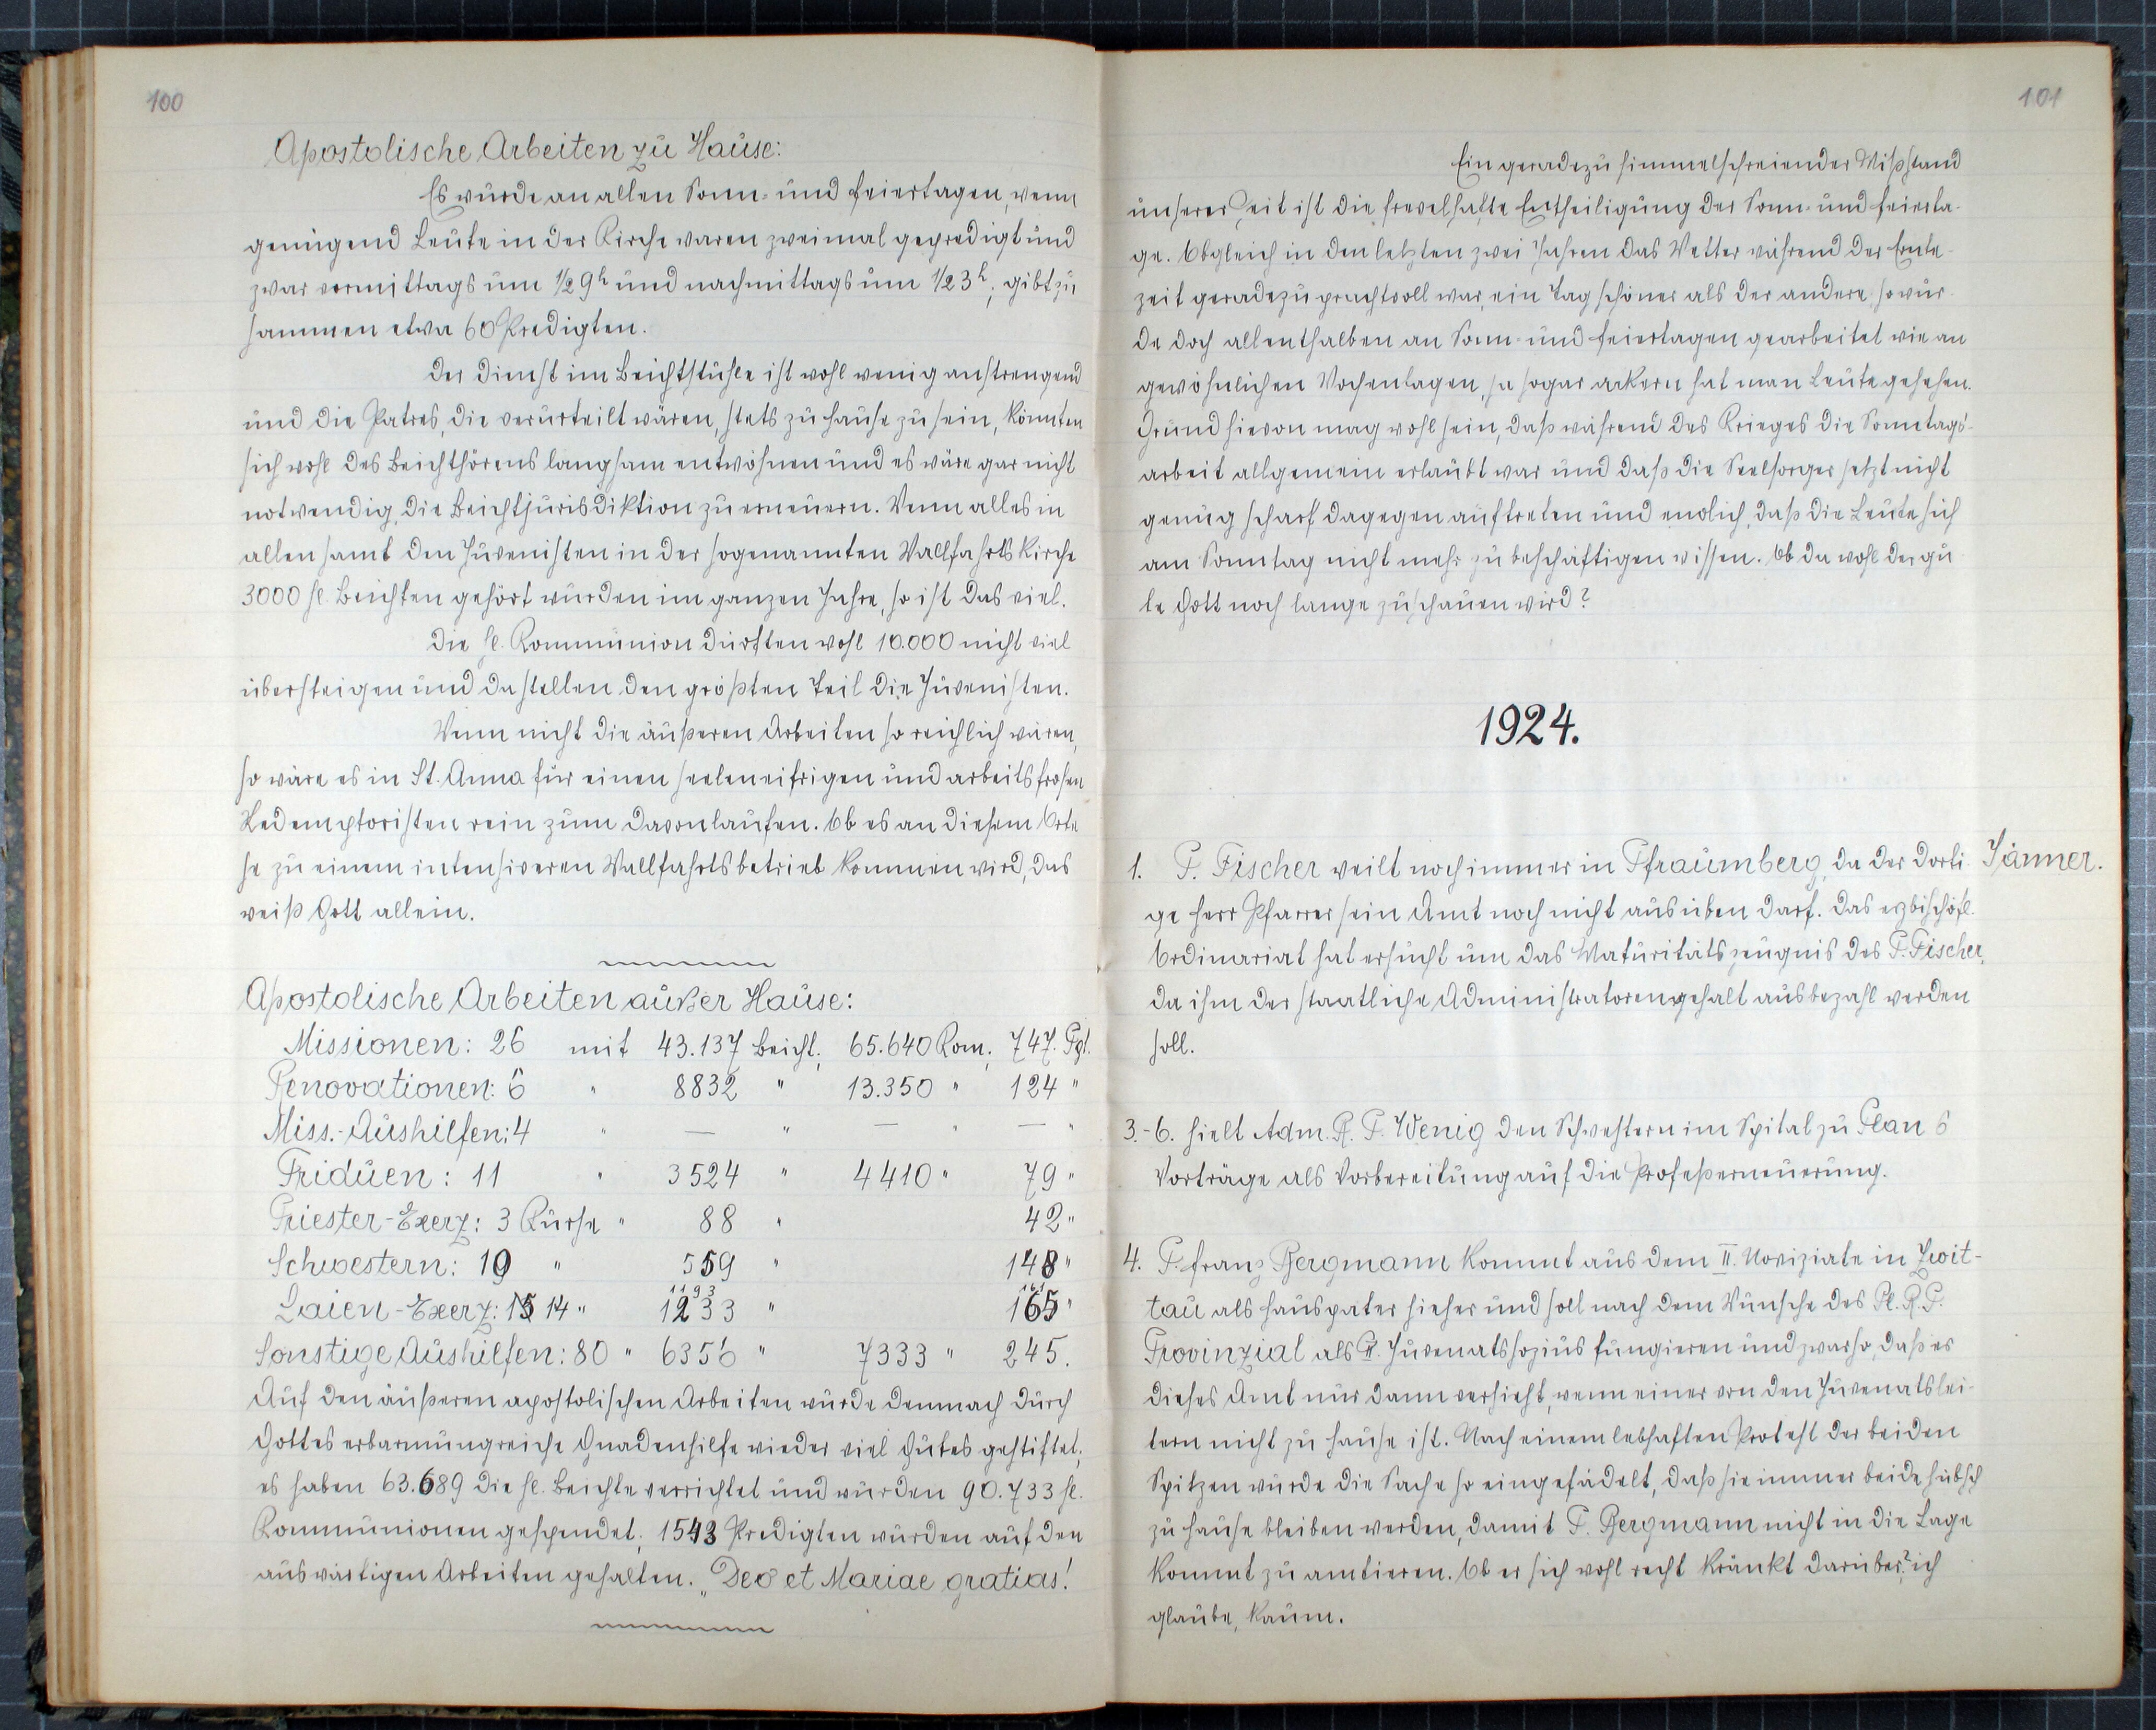 100
Apostolische Arbeiten zu Hause:
Es wurde an allen Sonn- und Feiertagen, wenn
genügend Leute in der Kirche waren zweimal gepredigt und
zwar vormittags um 1/2 9h und nachmittags um 1/2 3h; gibt zu
sammen etwa 60 Predigten.
Der Dienst im Beichtstuhle ist wohl wenig anstrengend
und die Patres, die verurteilt wären, stets zu Hause zu sein, könnten
sich wohl des Beichthörens langsam entwöhnen und es wäre gar nicht
notwendig, die Beichtjurisdiktion zu erneuern. Wenn alles in
allen samt den Juvenisten in der sogenannten Wallfahrtskirche
3000 hl. Beichten gehört wurden im ganzen Jahre, so ist das viel.
Die hl. Kommunion dürften wohl 10.000 nicht viel
übersteigen und da stellen den größten Teil die Juvenisten.
Wenn nicht die äußeren Arbeiten so reichlich wären,
so wäre es in St. Anna für einen seeleneifrigen und arbeitsfrohen
Redemptoristen rein zum Davonlaufen. Ob es an diesem Orte
je zu einem intensiveren Wallfahrtsbetrieb kommen wird, das
weiß Gott allein.
Apostolische Arbeiten außer Hause:
Missionen: 26 mit 43.137 Beicht. 65.640 Kom. 747. Pgt.
Renovationen: 6 " 8832 " 13.350 " 124 "
Miss.-Aushilfen: 4 " — " — " — "
Triduen: 11 " 3524 " 4410 " 79 "
Priester-Exerz: 3 Kurse " 88 " 42 "
Schwestern: 19 " 559 " 148 "
Laien-Exerz: 15 14 " 1193 1233 " 161 165 "
Sonstige Aushilfen: 80 " 6356 " 7333 " 245.
Auf den äußeren apostolischen Arbeiten wurde demnach durch
Gottes erbarmungreiche Gnadenhilfe wieder viel Gutes gestiftet;
es haben 63.689 die hl. Beichte verrichtet und wurden 90.733 hl.
Kommunionen gespendet; 1543 Predigten wurden auf den
auswärtigen Arbeiten gehalten. „Deo et Mariae gratias!
101
Ein geradezu himmelschreiender Mißstand
unserer Zeit ist die frevelhafte Entheiligung der Sonn- und Feierta-
ge. Obgleich in den letzten zwei Jahren das Wetter während der Ernte-
zeit geradezu prachtvoll war, ein Tag schöner als der andere, so wur-
de doch allenthalben an Sonn- und Feiertagen gearbeitet wie an
gewöhnlichen Wochentagen, ja sogar ackern hat man Leute gesehen.
Grund hievon mag wohl sein, daß während des Krieges die Sonntags-
arbeit allgemein erlaubt war und daß die Seelsorger jetzt nicht
genug scharf dagegen auftreten und endlich, daß die Leute sich
am Sonntag nicht mehr zu beschäftigen wissen. Ob da wohl der gu
te Gott noch lange zuschauen wird?
1924.
Jänner.
1. P. Fischer weilt noch immer in Pfraumberg, da der dorti
ge Herr Pfarrer sein Amt noch nicht ausüben darf. Das erzbischöfl.
Ordinariat hat ersucht um das Maturitätszeugnis des P. Fischer,
da ihm der staatliche Administratorengehalt ausbezahl werden
soll.
3.-6. hielt Adm. R. P. Wenig den Schwestern im Spital zu Plan 6
Vorträge als Vorbereitung auf die Profeßerneuerung.
4. P. Franz Bergmann kommt aus dem II. Noviziate in Zwit-
tau als Hauspater hieher und soll nach dem Wunsche des Pl. R. P.
Provinzial als II. Juvenatssozius fungieren und zwar so, daß es
dieses Amt nur dann versieht, wenn einer von den Juvenatslei-
tern nicht zu Hause ist. Nach einem lebhaften Protest der beiden
Spitzen wurde die Sache so eingefädelt, daß sie immer beide hübsch
zu Hause bleiben werden, damit P. Bergmann nicht in die Lage
kommt zu amtieren. Ob er sich wohl recht kränkt darüber? ich
glaube, kaum.